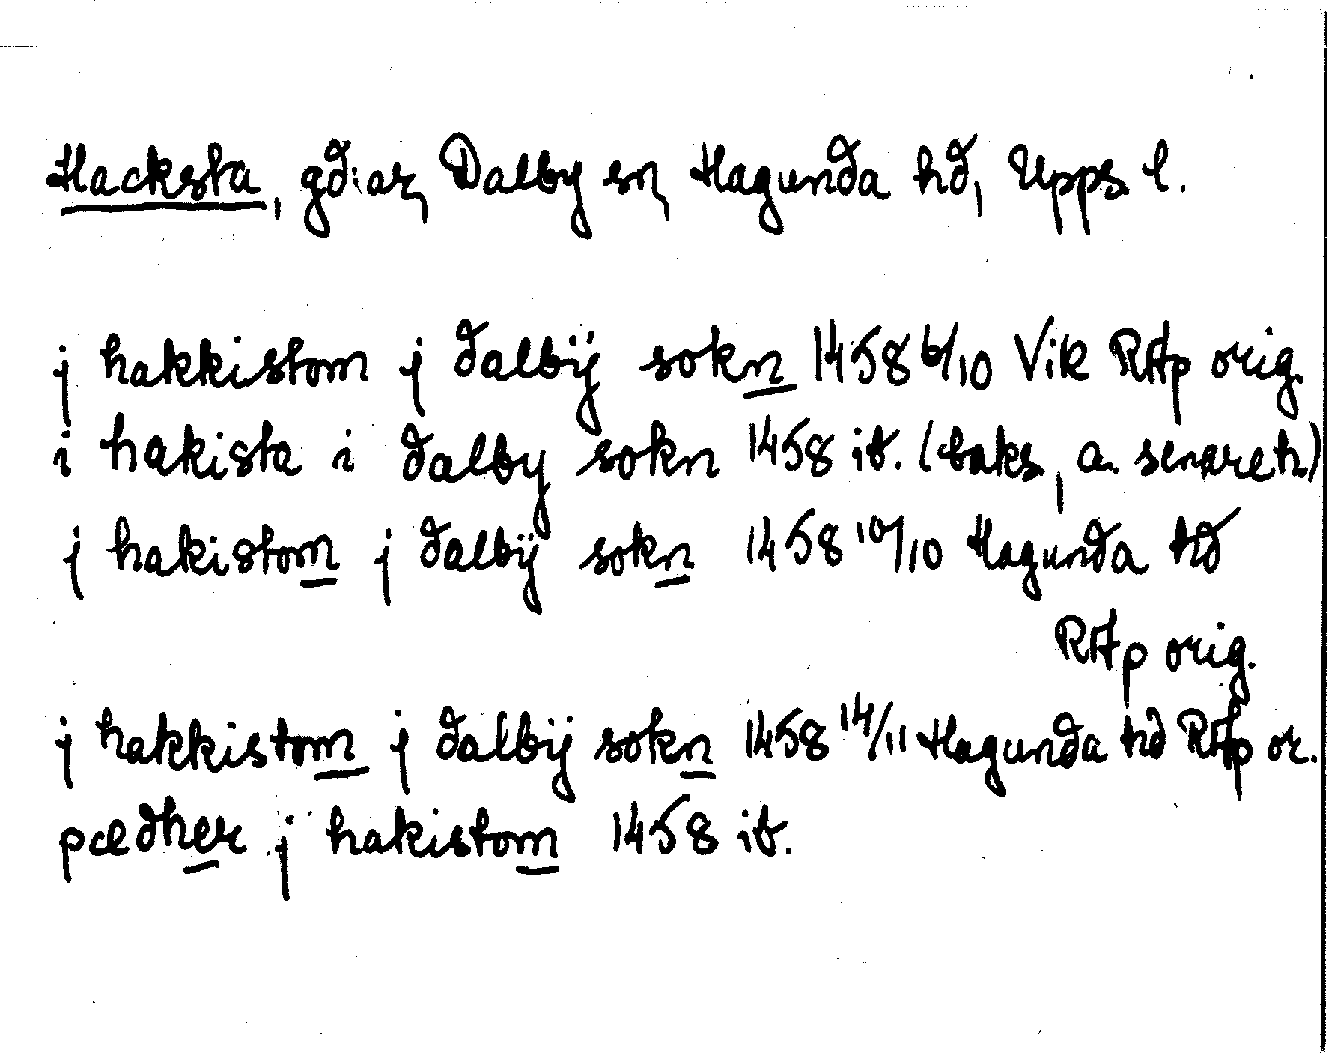 Hacksta, gd:ar, Dalby sn, Hagunda hd, Upps. l.
j hakkistom j dalbÿ sokn 1458 6/10 Vik RAp orig.
i hakista i dalby sokn 1458 ib. (baks, a. senare h)
j hakistom j dalbÿ sokn 1458 10/10 Hagunda hd
RAp orig.
j hakkistom j dalbÿ sokn 1458 14/11 Hagunda hd RAp or.
pædher j hakistom 1458 ib.